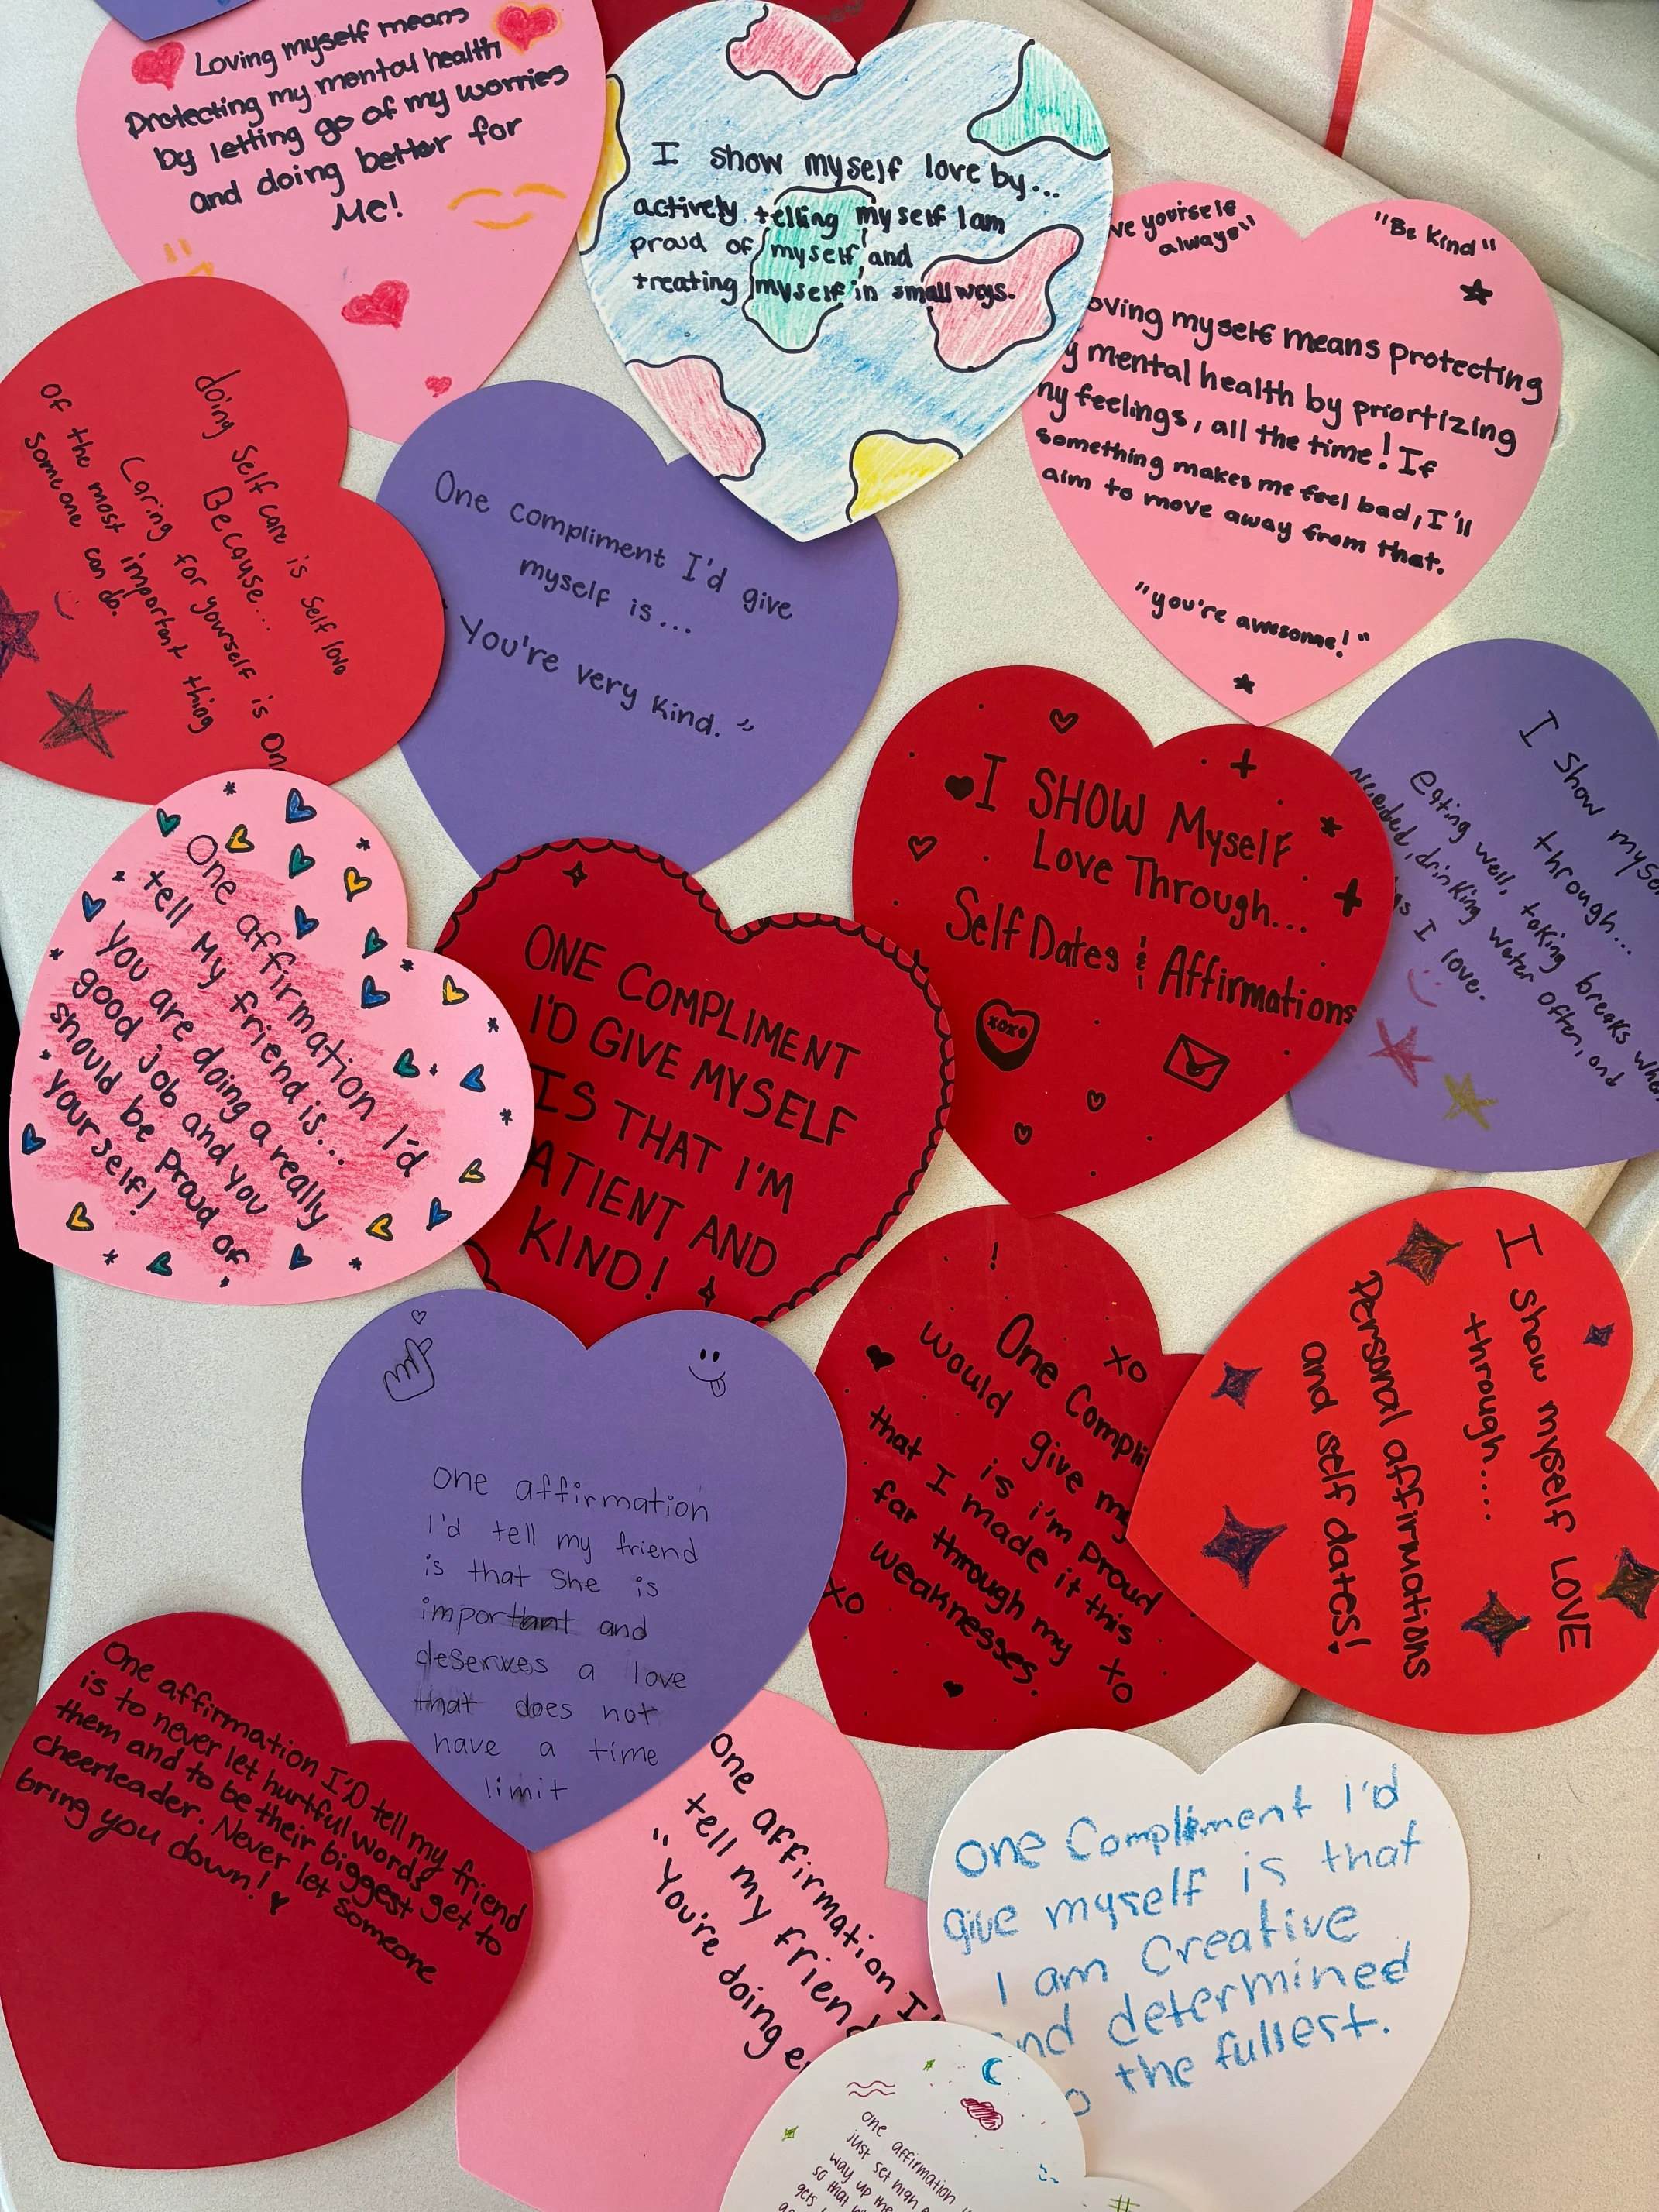 Loving myself means
Protecting my mental health
by letting go of my worries
and doing better for
Me!
I show myself love by...
actively telling myself I am
proud of myself, and
treating myself in small ways.
yourself
always"
"Be Kind"
myself means protecting
mental health by priortizing
feelings, all the time! If
something makes me feel bad, I'll
aim to move away from that.
"you're awesome!"
doing Self care is self love
Because...
Caring for yourself is One
of the most important thing
someone can do.
One compliment I'd give
myself is...
You're very kind."
I SHOW Myself
Love Through...
Self Dates & Affirmations
xoxo
I show
through...
Eating well, taking breaks
Needed, drinking water often, and
I love.
One affirmation I'd
tell My friend is...
you are doing a really
good job and you
should be proud of,
yourself!
ONE COMPLIMENT
I'D GIVE MYSELF
IS THAT I'M
KIND!
AND
One
would give
is i'm proud
that I made it this
far through my
weaknesses.
XO
XO
XO
I show myself LOVE
through....
Personal affirmations
and self dates!
one affirmation
I'd tell my friend
is that she is
important and
deserves a love
that does not
have a time
limit
One affirmation I'D tell my friend
is to never let hurtful words get to
them and to be their biggest
cheerleader. Never let someone
bring you down!
One affirmation
tell my
"You're doing
One Compliment I'd
give myself is that
I am Creative
determined
the fullest.
one affirmation
just set high
way up
so that
gets